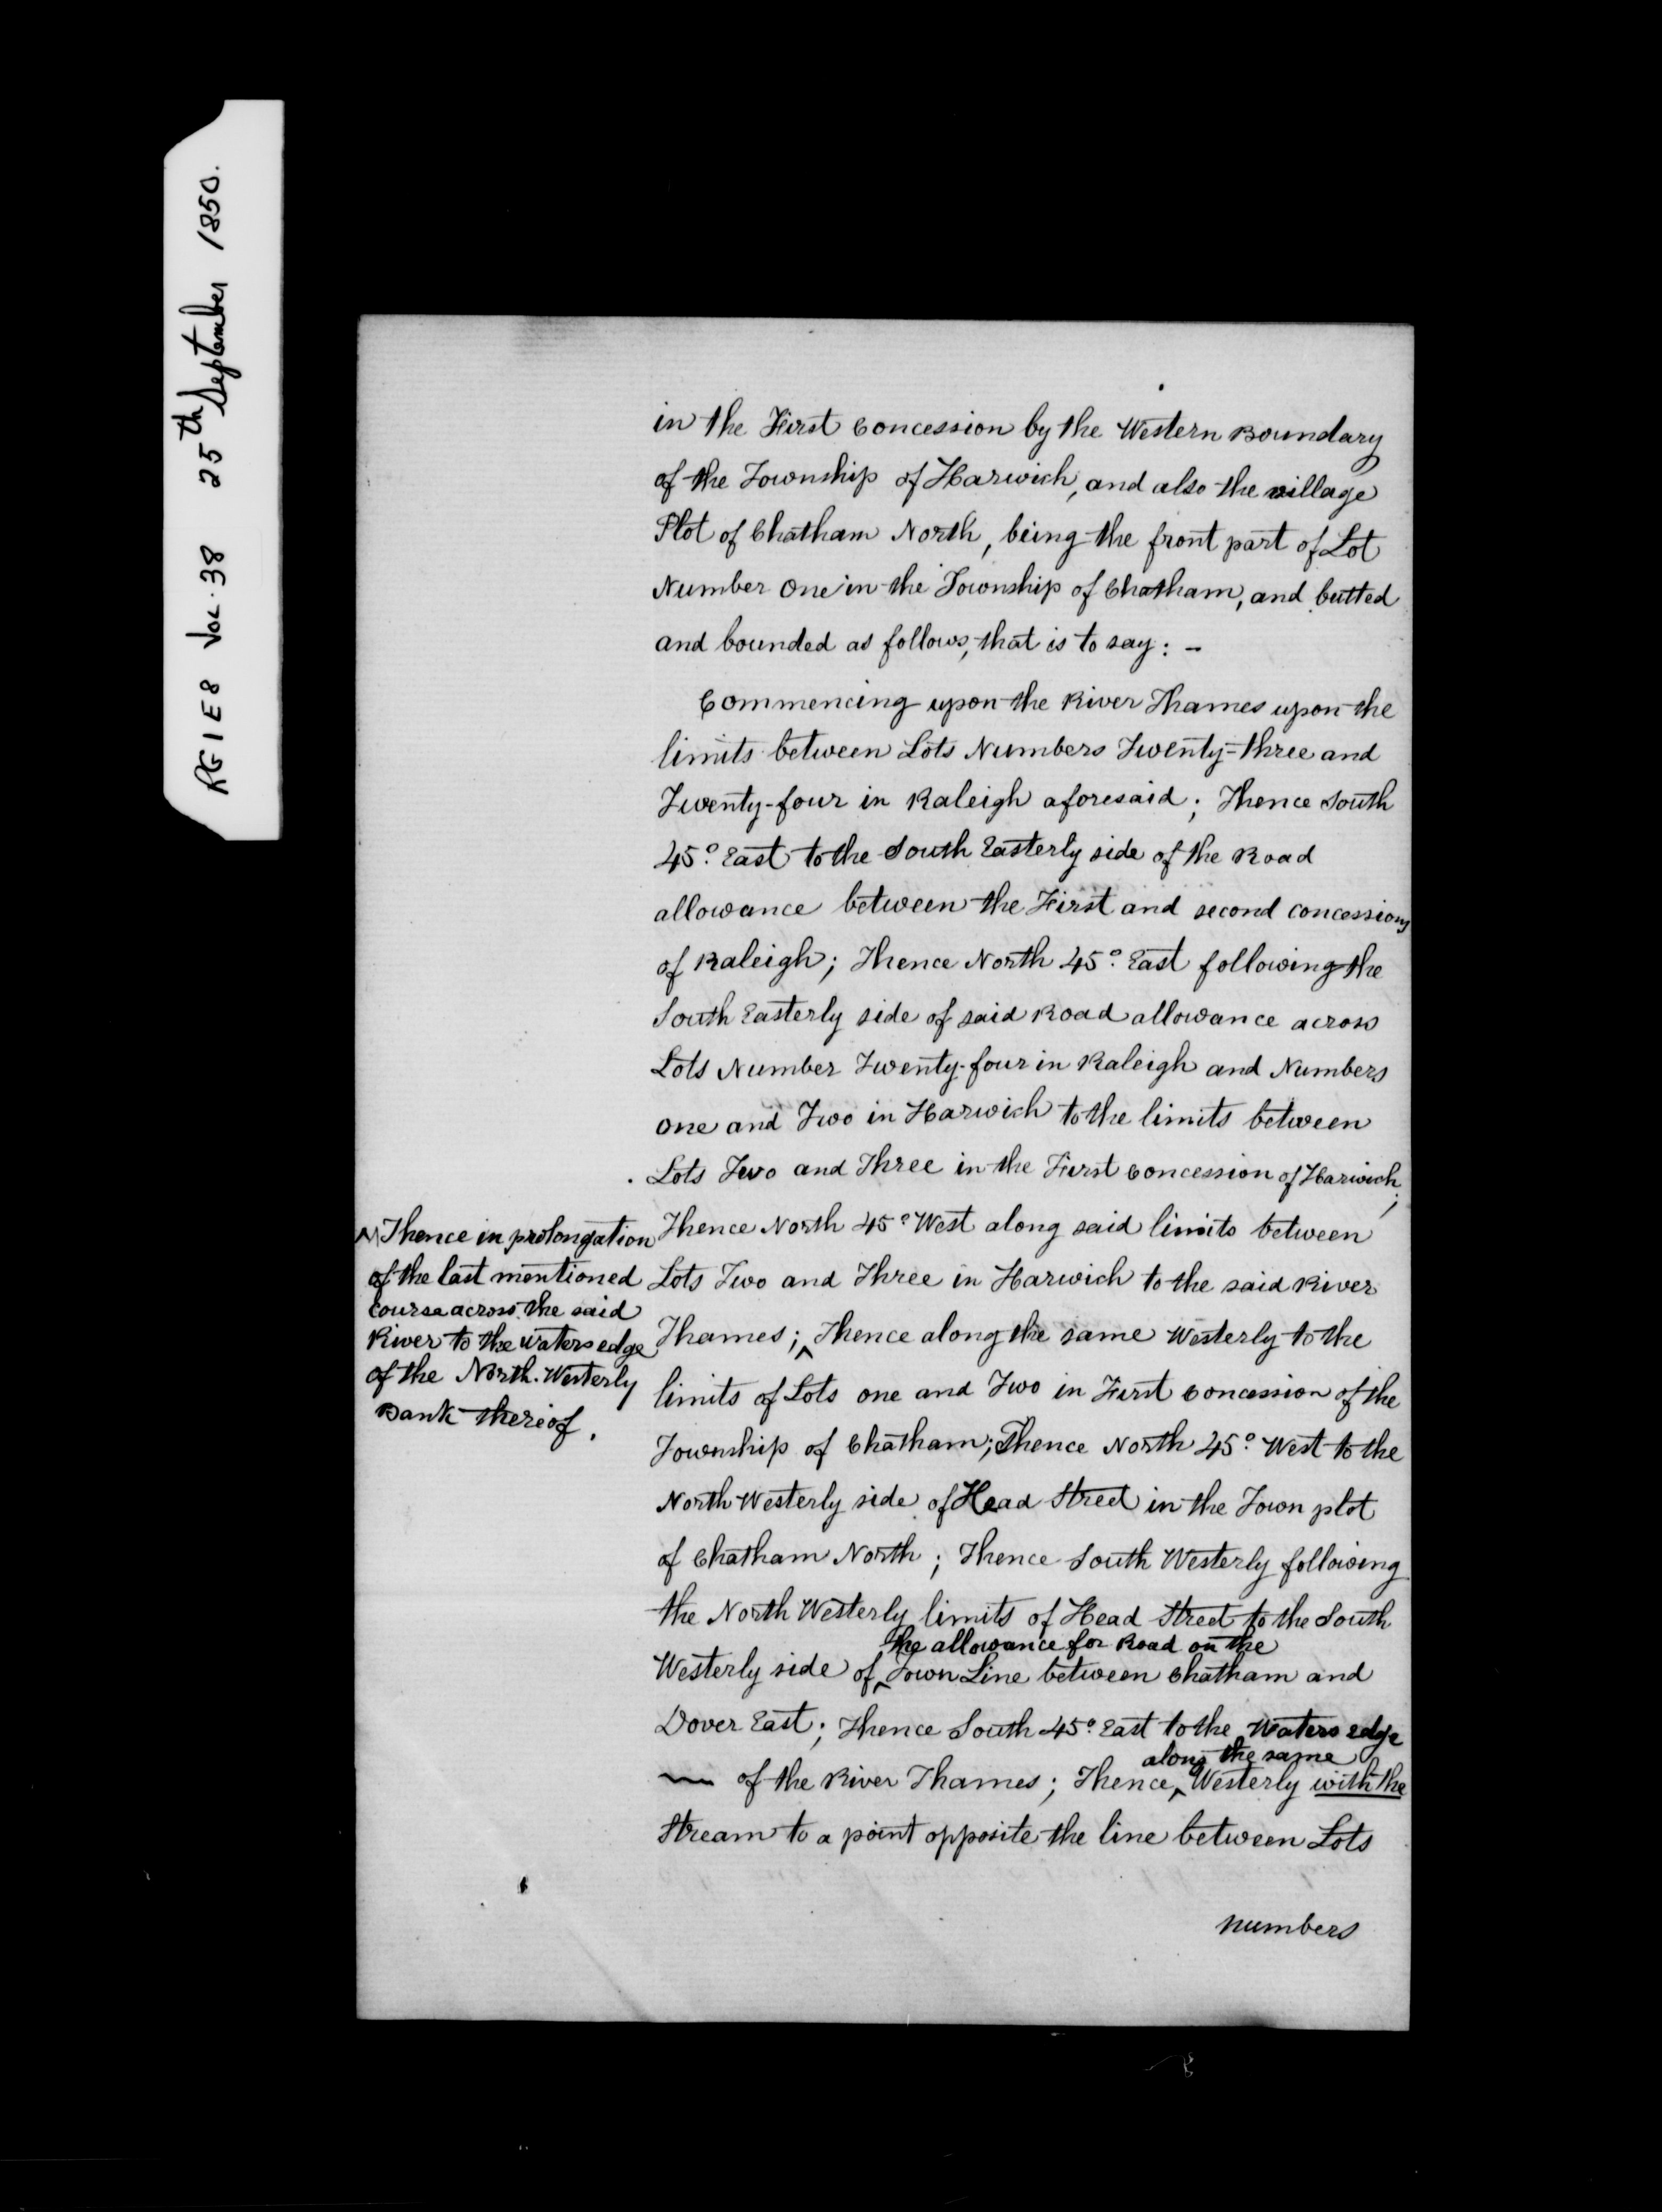 RG 1 E 8 Vol. 38 25th September 1850.
in the First Concession by the Western Boundary
of the Township of Harwich, and also the village
Plot of Chatham North, being the front part of Lot
Number One in the Township of Chatham, and butted
and bounded as follows, that is to say: -
Commencing upon the River Thames upon the
limits between Lots Numbers Twenty-three and
Twenty-four in Raleigh aforesaid; Thence South
45° East to the South Easterly side of the Road
allowance between the First and second concessions
of Raleigh; Thence North 45° East following the
South Easterly side of said Road allowance across
Lots Number Twenty-four in Raleigh and Numbers
one and Two in Harwich to the limits between
Lots Two and Three in the First Concession of Harwich;
Thence North 45° West along said limits between
Lots Two and Three in Harwich to the said River
Thames; ^ Thence along the same Westerly to the
limits of Lots one and Two in First Concession of the
Township of Chatham; Thence North 45° West to the
North Westerly side of Head Street in the Town plot
of Chatham North; Thence South Westerly following
the North Westerly limits of Head Street to the South
the allowance for Road on the
Westerly side of ^ Town Line between Chatham and
Dover East; Thence South 45° East to the Waters edge
along the same
of the River Thames; Thence ^ Westerly with the
Stream to a point opposite the line between Lots
numbers
^ Thence in prolongation
of the last mentioned
course across the said
River to the waters edge
of the North Westerly
Bank thereof.